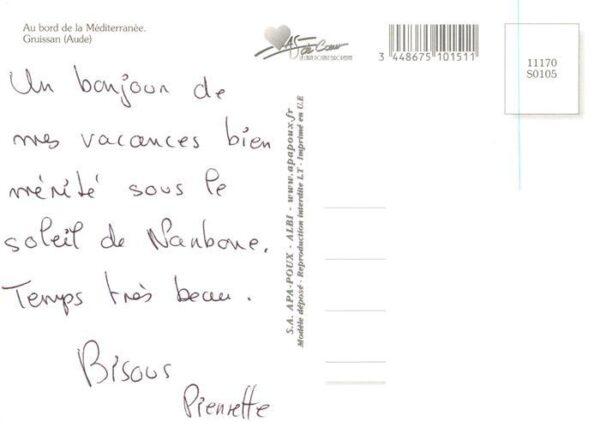 Au bord de la Méditerranée.
Gruissan (Aude)
As de Cœur
3 448675 101511
11170
S0105
Un bonjour de
mes vacances bien
mérité sous le
soleil de Narbone.
Temps très beau.
Bisous
Pierrette
S.A. APA-POUX - ALBI - www.apapoux.fr
Modèle déposé - Reproduction interdite LT - Imprimé en U.E